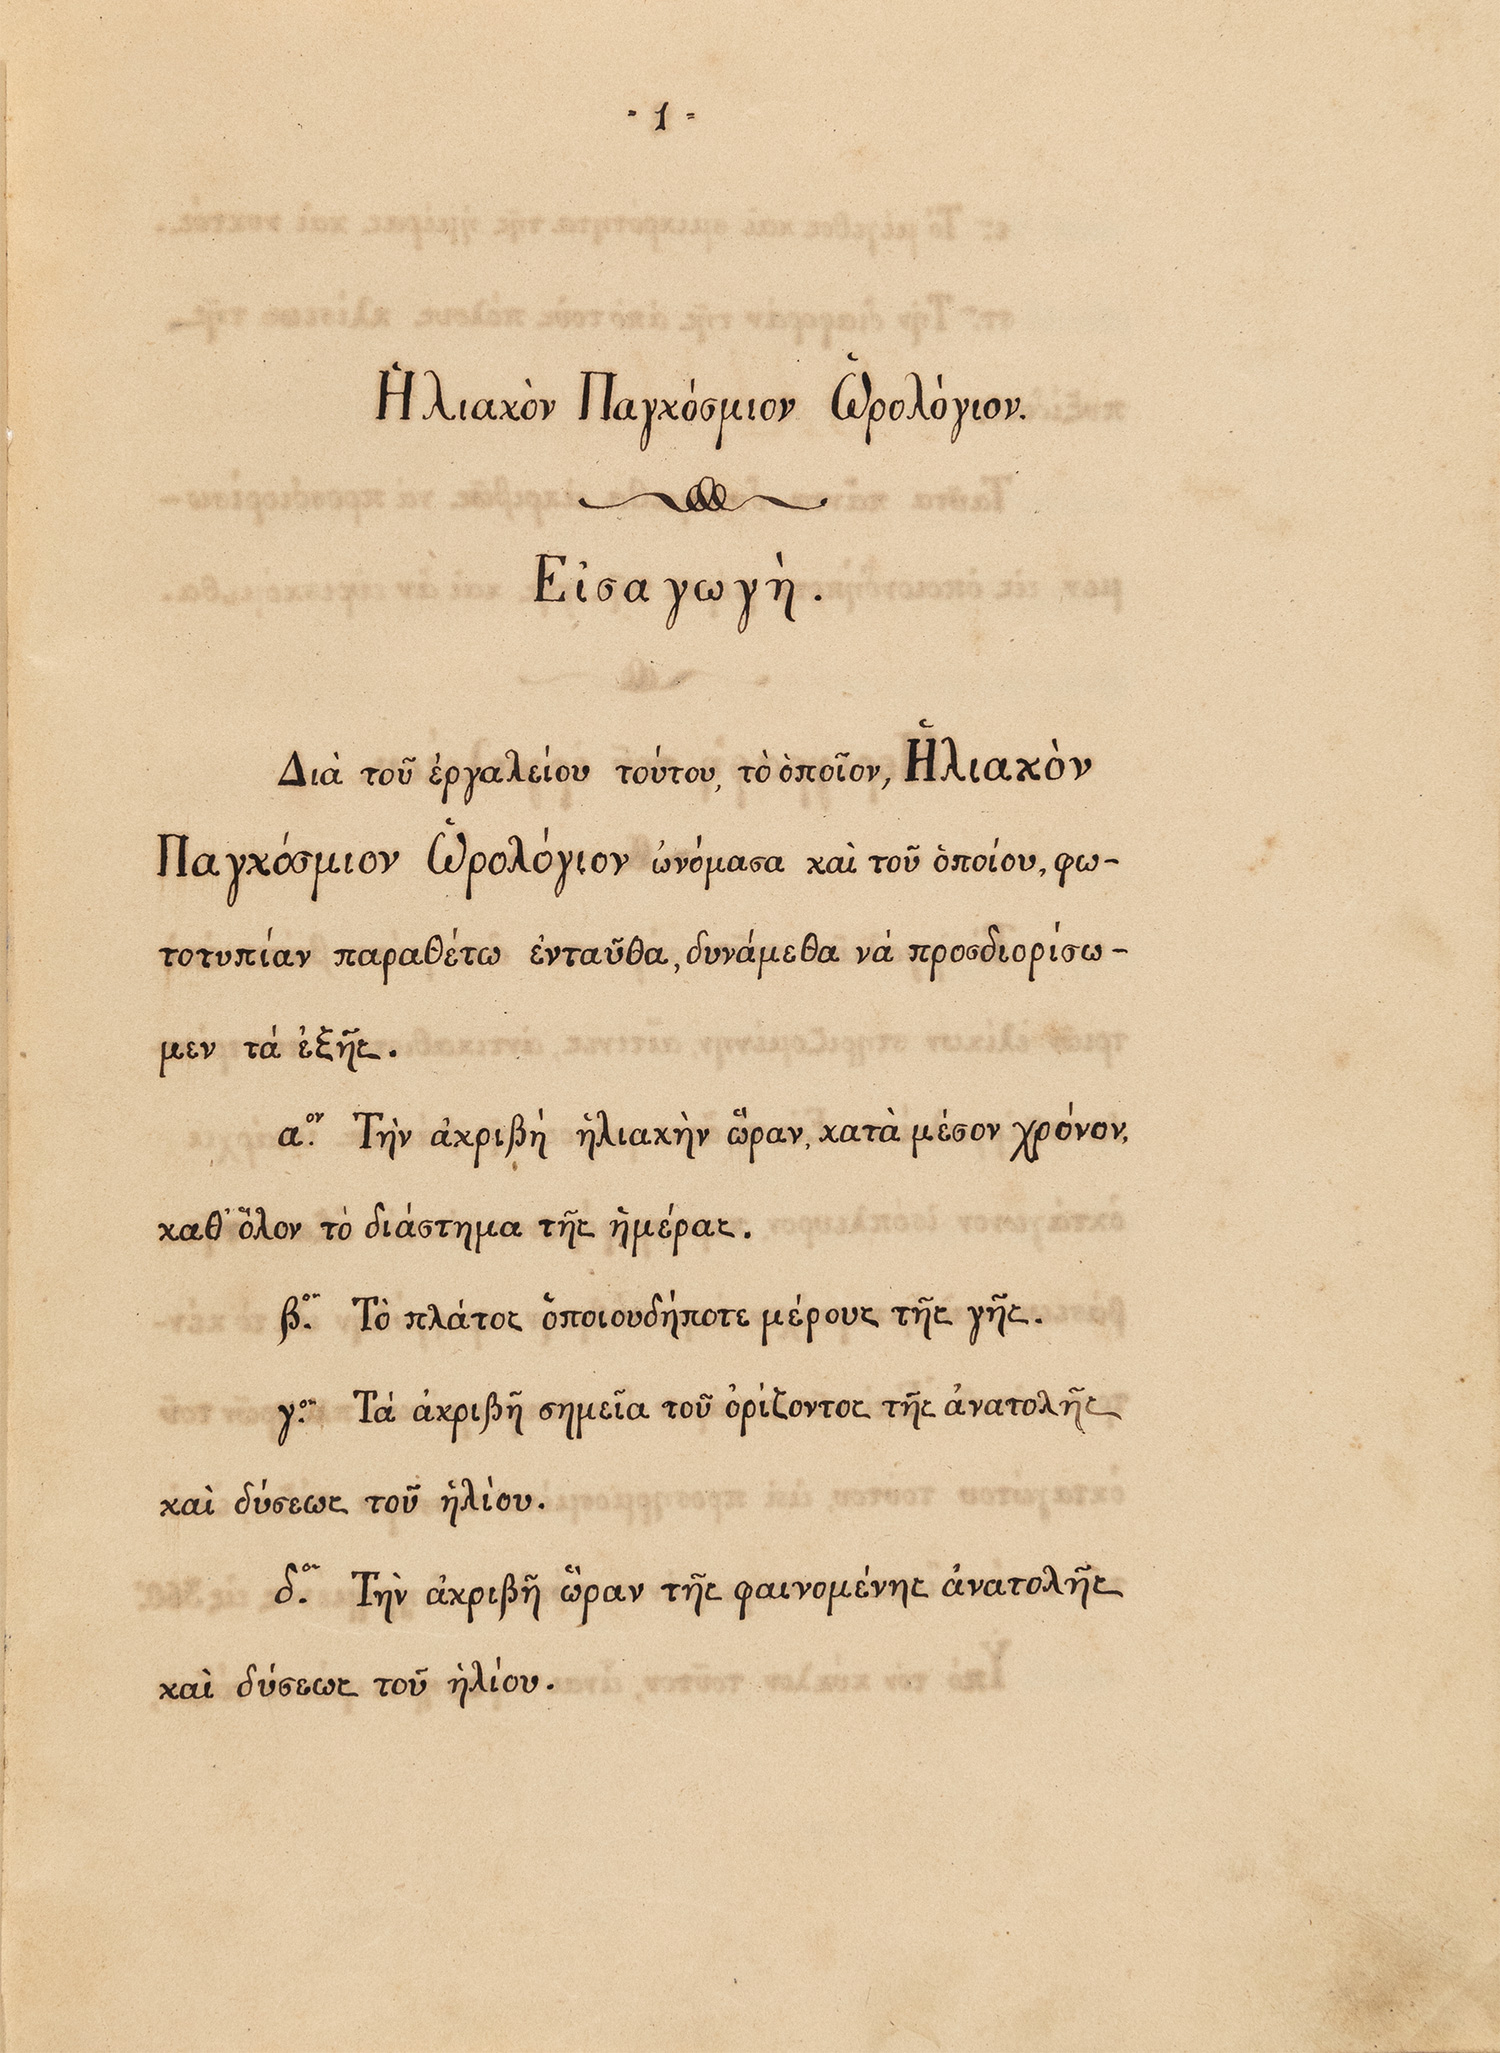 - 1 -
Ἡλιακὸν Παγκόσμιον Ὡρολόγιον.
Εἰσαγωγὴ.
Διὰ τοῦ ἐργαλείου τούτου, τὸ ὁποῖον, Ἡλιακὸν
Παγκόσμιον Ὡρολόγιον ὠνόμασα καὶ τοῦ ὁποίου, φω-
τοτυπίαν παραθέτω ἐνταῦθα, δυνάμεθα νὰ προσδιορίσω-
μεν τὰ ἑξῆς.
α.ον Τὴν ἀκριβῆ ἡλιακὴν ὥραν, κατὰ μέσον χρόνον,
καθ' ὅλον τὸ διάστημα τῆς ἡμέρας.
β.ον Τὸ πλάτος ὁποιουδήποτε μέρους τῆς γῆς.
γ.ον Τὰ ἀκριβῆ σημεῖα τοῦ ὁρίζοντος τῆς ἀνατολῆς
καὶ δύσεως τοῦ ἡλίου.
δ.ον Τὴν ἀκριβῆ ὥραν τῆς φαινομένης ἀνατολῆς
καὶ δύσεως τοῦ ἡλίου.